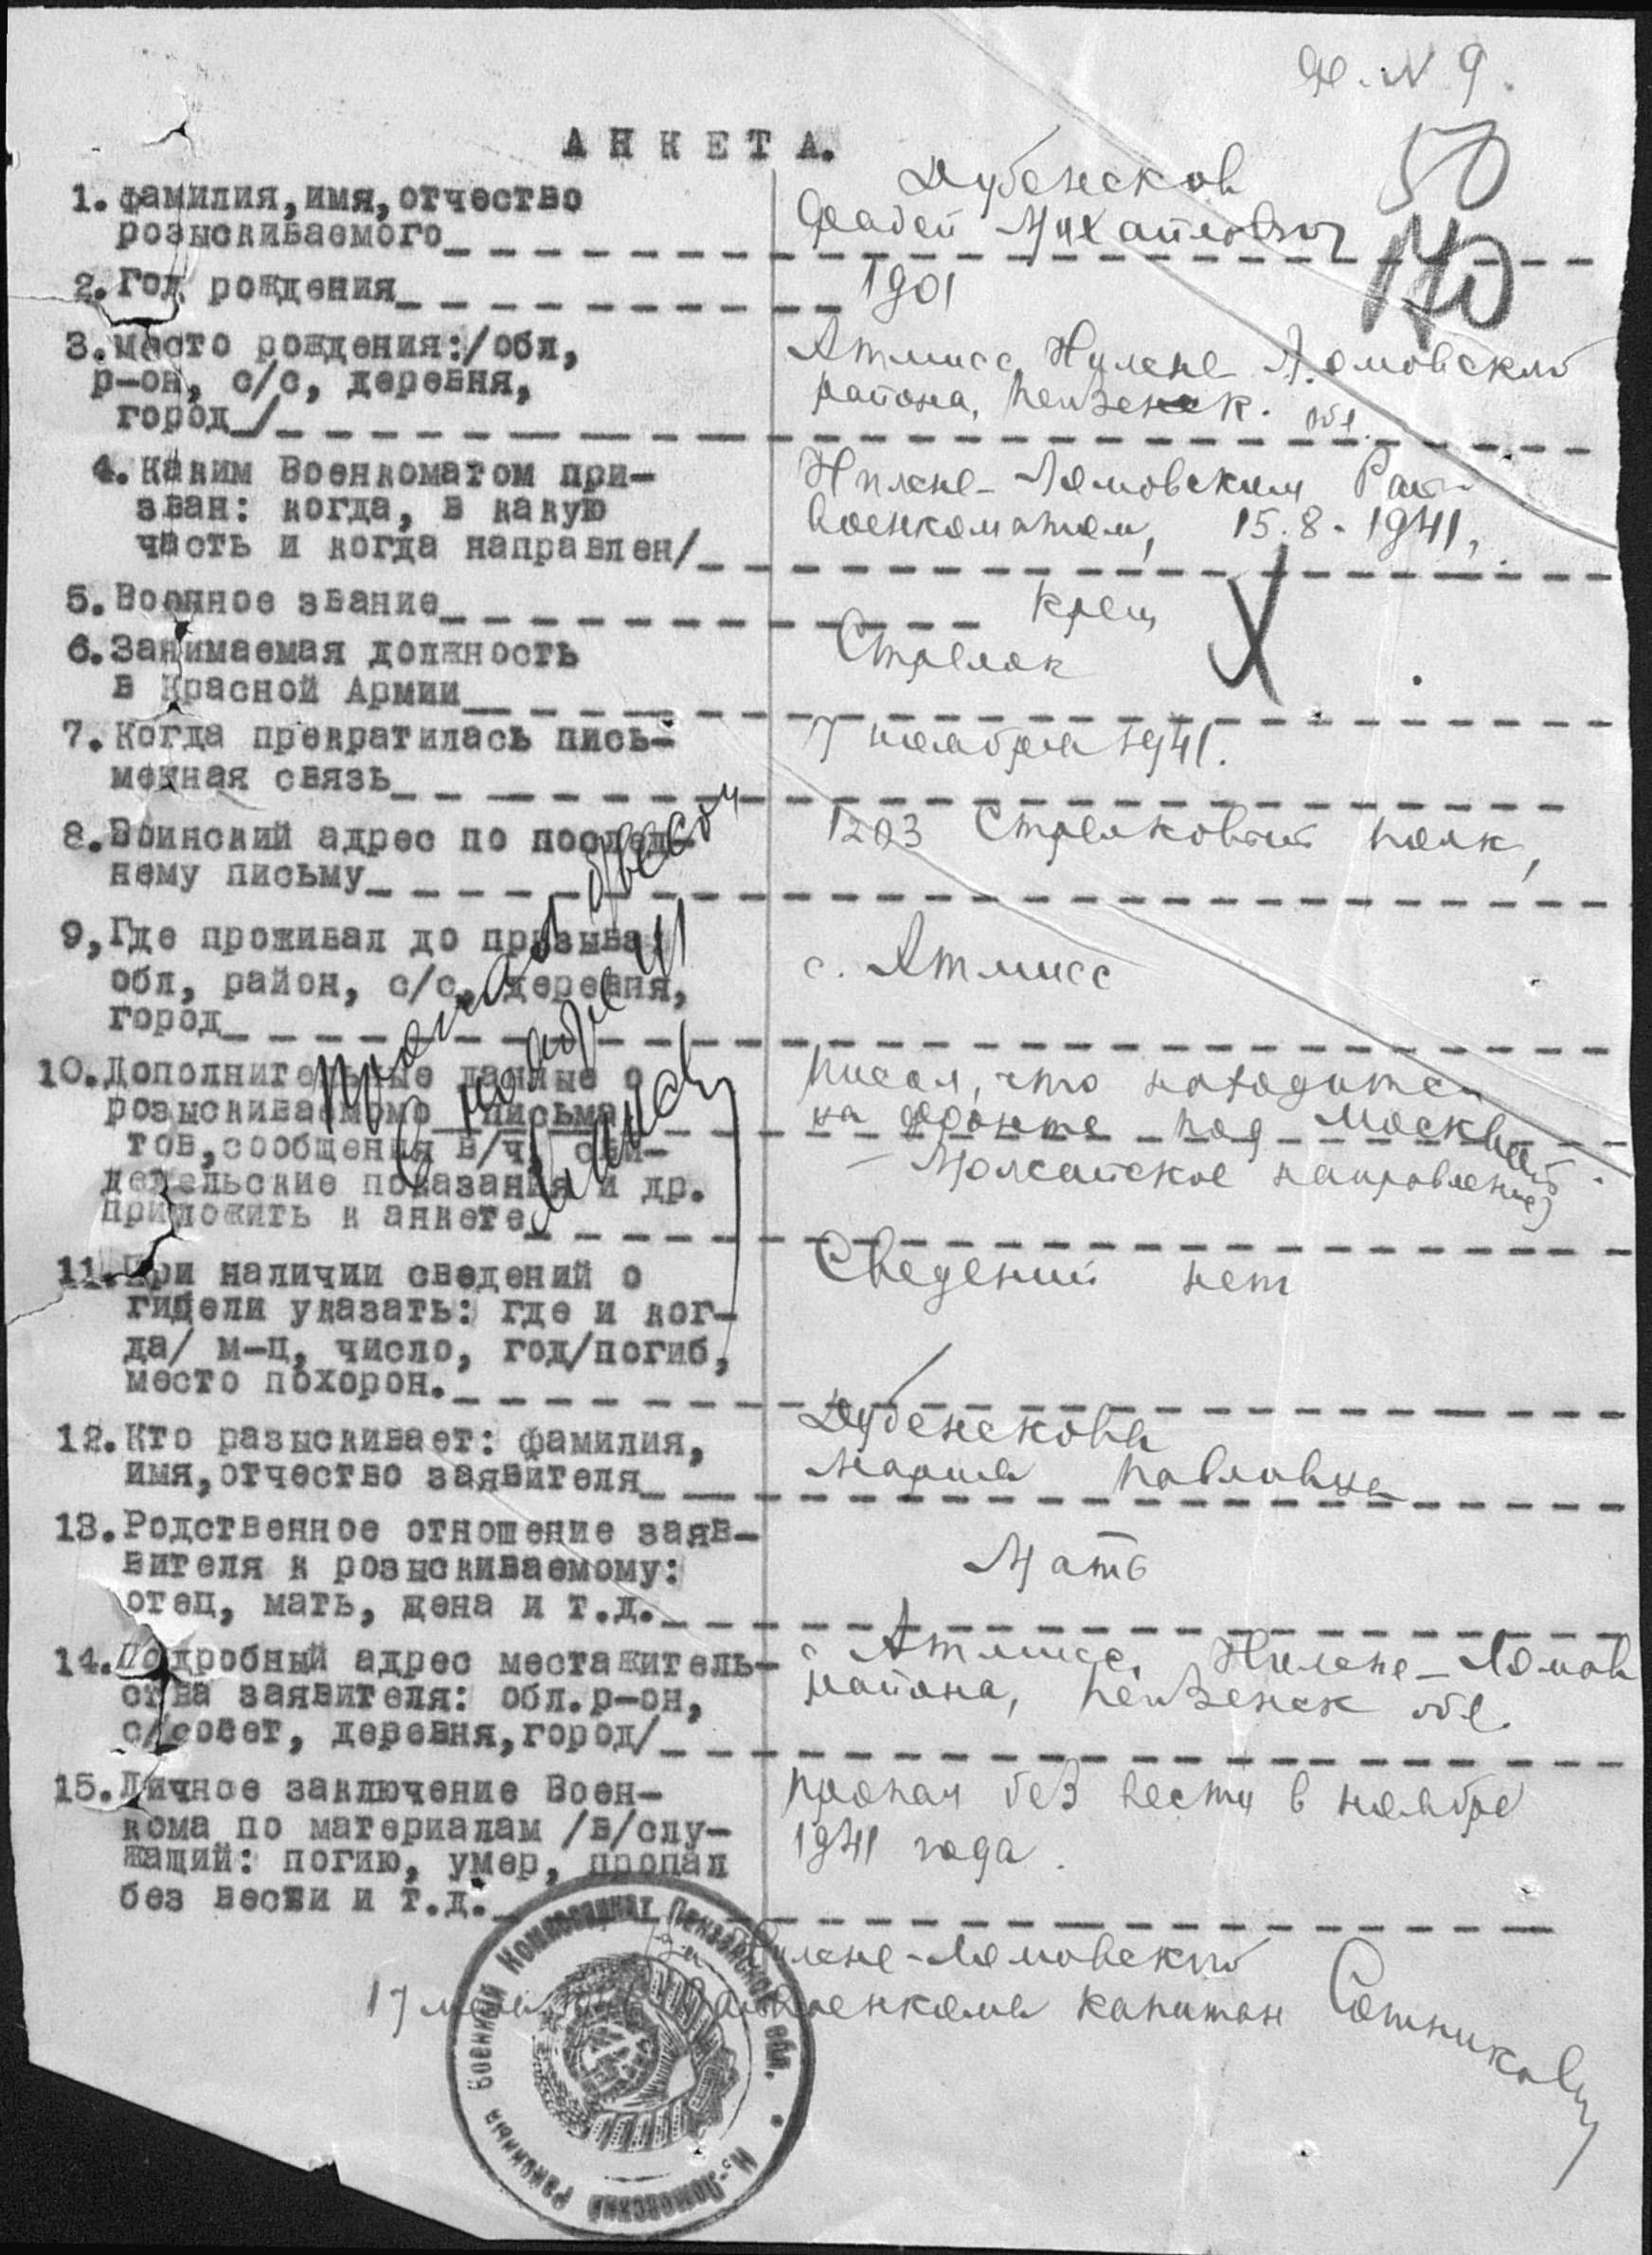 Ф. N 9.
50
170
АНКЕТА.
1. фамилия, имя, отчество
розыскиваемого
Дубенсков
Фадей Михайлович
2. Год рождения
1901
3. место рождения:/обл,
р-он, с/с, деревня,
город/
Атмисс, Нижне Ломовского
района, Пензенск. обл.
4. Каким Военкоматом при-
зван: когда, в какую
часть и когда направлен/
Нижне-Ломовским Рай-
военкоматом, 15.8-1941,
5. Военное звание
Кр-ец
6. Занимаемая должность
в Красной Армии
Стрелок
7. Когда прекратилась пись-
менная связь
7 ноября 1941.
8. Воинский адрес по послед-
нему письму
1203 Стрелковый полк,
9, Где проживал до призыва:
обл, район, с/с, деревня,
город
с. Атмисс
10. Дополнительные данные о
розыскиваемомо письма
тов, сообщения в/ч, сви-
детельские показания и др.
приложить к анкете
писал, что находится
на фронте под Москвой
- Можайское направление)
Пропал без вести
в ноябре 41
11. При наличии сведений о
гибели указать: где и ког-
да/ м-ц, число, год/погиб,
место похорон.
Сведений нет
12. Кто разыскивает: фамилия,
имя, отчество заявителя
Дубенскова
Мария Павловна
13. Родственное отношение заяв-
вителя к розыскиваемому:
отец, мать, жена и т.д.
Мать
14. Подробный адрес местажитель-
ства заявителя: обл. р-он,
с/совет, деревня, город/
с Атмисс, Нижне-Ломов
района, Пензенск обл.
15. Личное заключение Воен-
кома по материалам /в/слу-
жащий: погию, умер, пропал
без вести и т.д.
Пропал без вести в ноябре
1941 года.
Нижне-Ломовский
17 мая Райвоенкома капитан Сотников
Н.-Ломовский Районный Военный Комиссариат Пензенской обл.